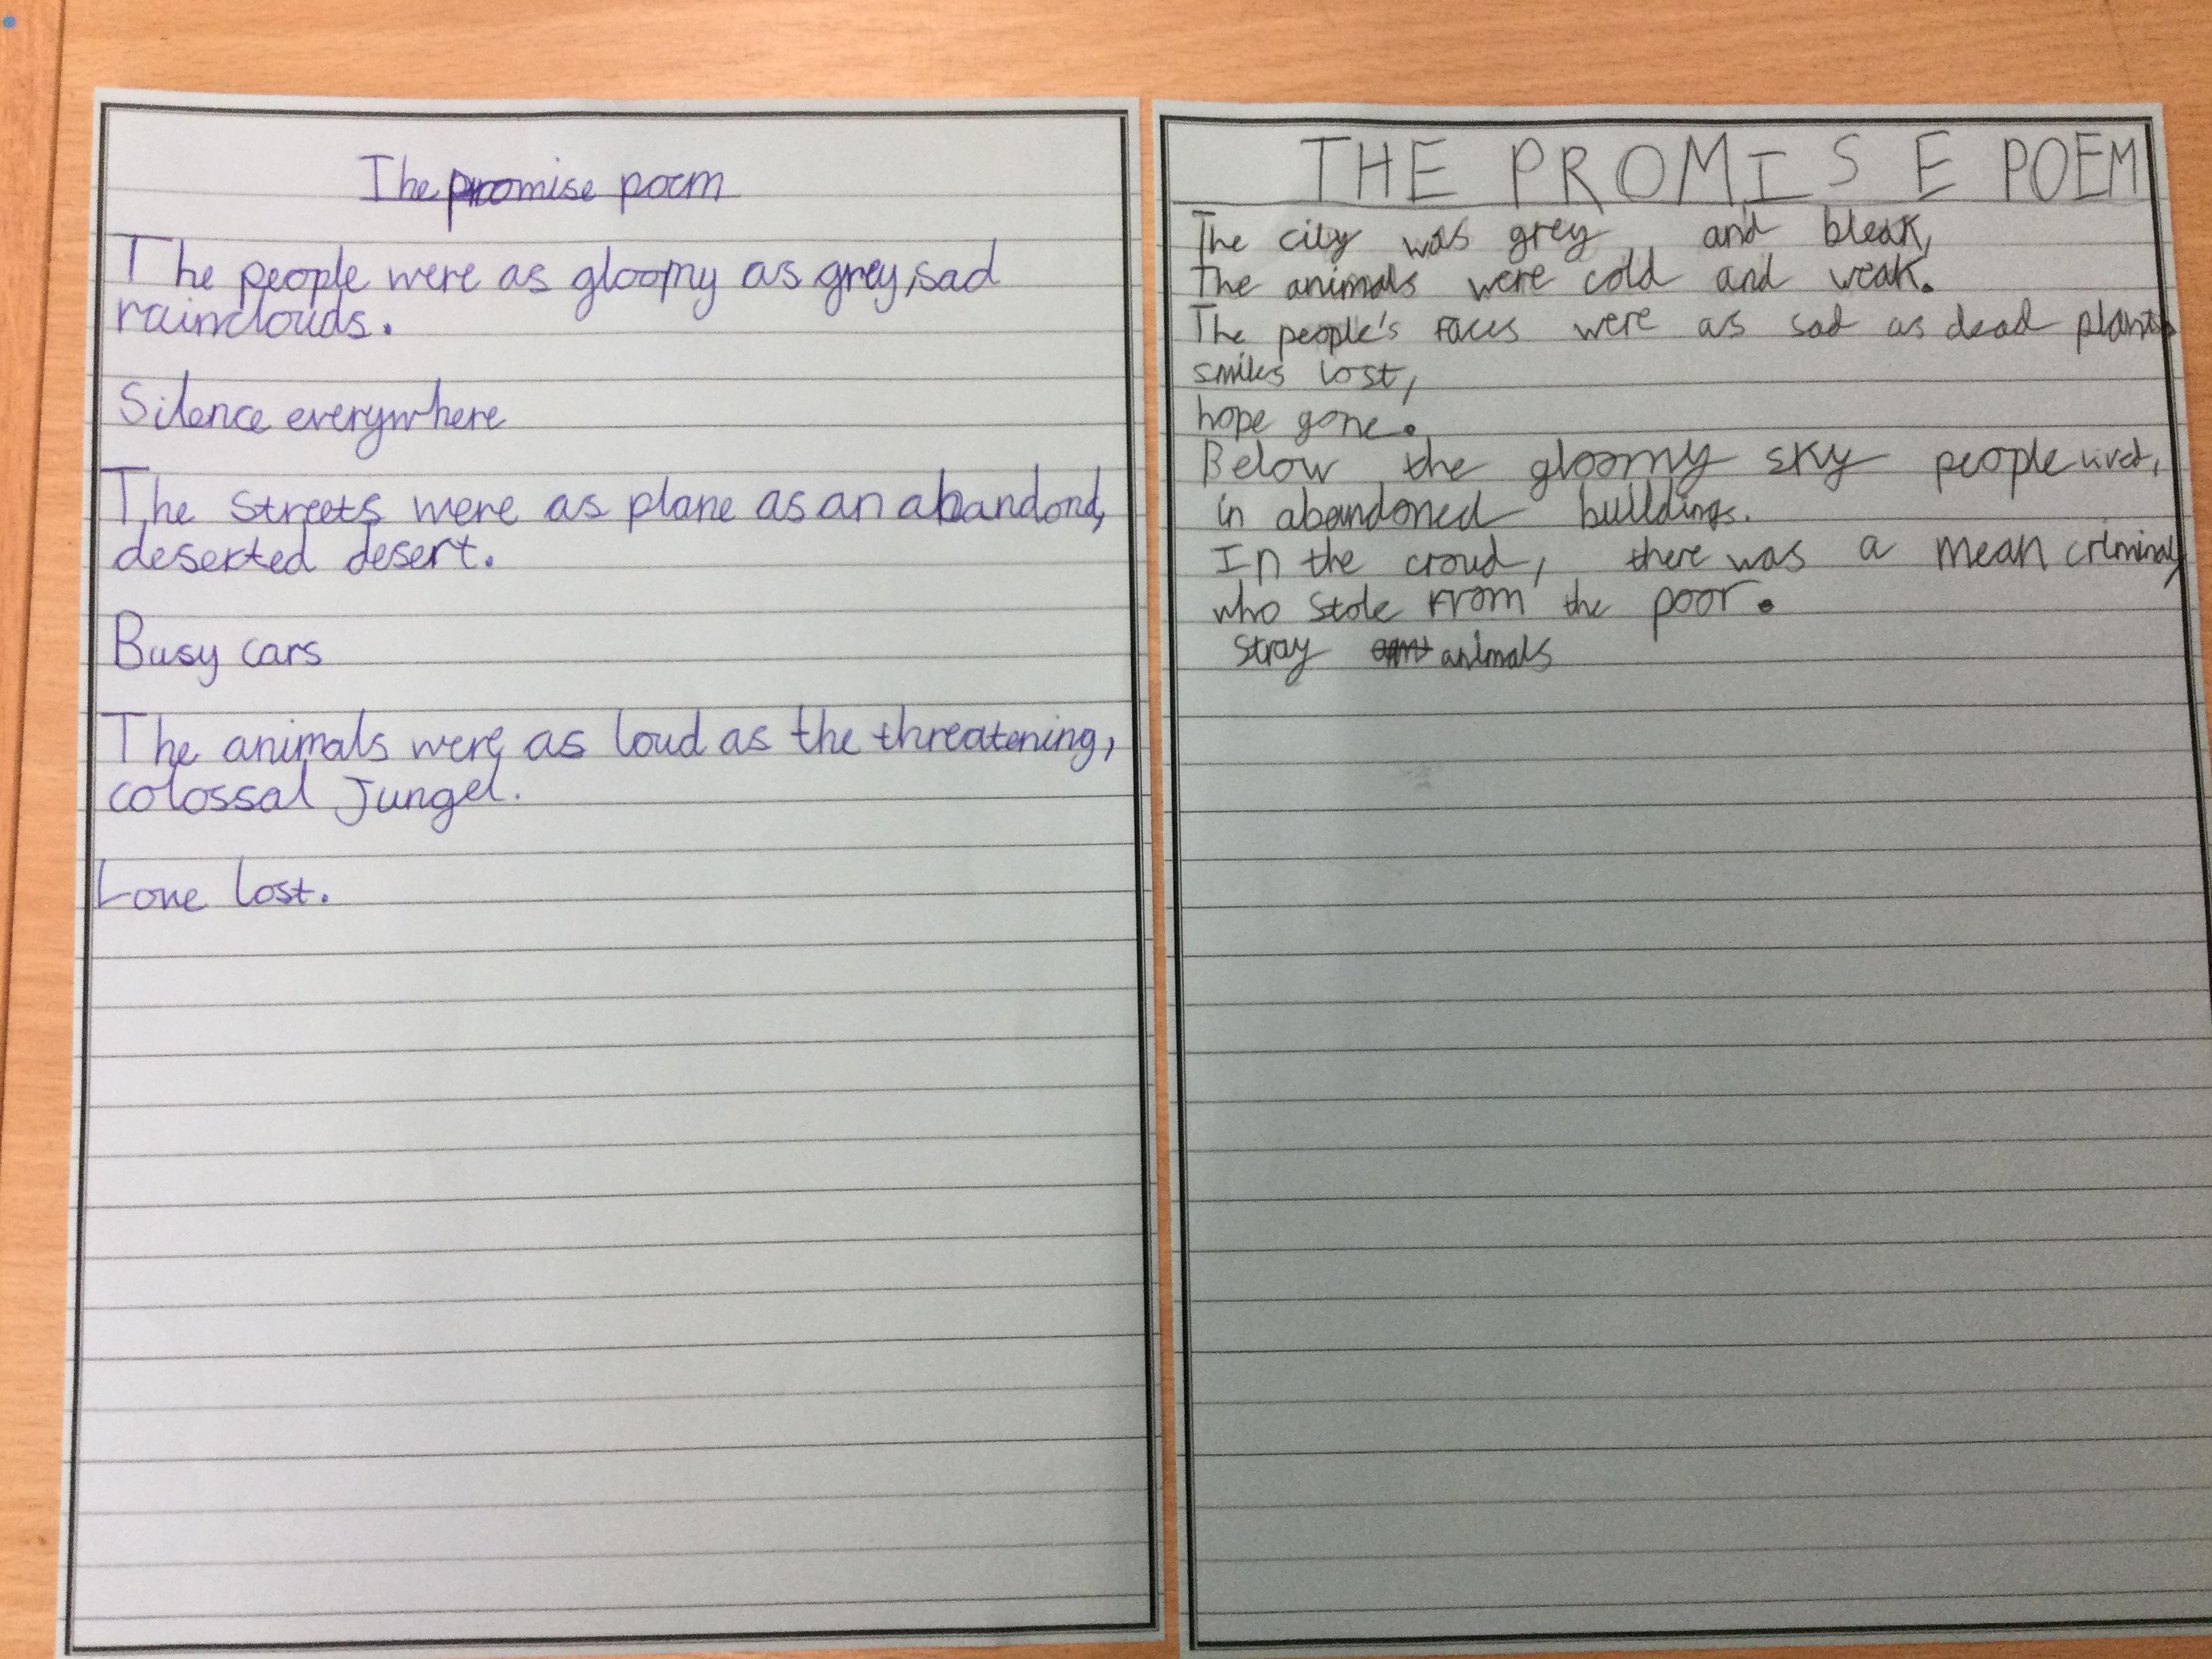 The promise poem
The people were as gloomy as grey, sad
rainclouds.
Silence everywhere
The streets were as plane as an abandond,
deserted desert.
Busy cars
The animals were as loud as the threatening,
colossal Jungel.
Love lost.
THE PROMISE POEM
The city was grey and bleak,
The animals were cold and weak.
The people's faces were as sad as dead plants.
smiles lost,
hope gone.
Below the gloomy sky people lived,
in abandoned buildings.
In the croud, there was a mean criminal,
who stole from the poor.
Stray animals